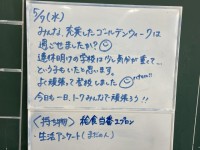 5/7(水)
みんな、充実したゴールデンウィークは
過ごせましたか？
連休明けの学校は少し気分が重くて…
という子もいたと思います。
よく頑張って登校しました
今日も一日、トークみんなで頑張ろう!!
〈持ち物〉 給食当番エプロン
・生活アンケート(まだの人)